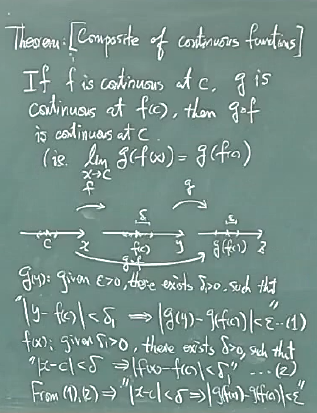 Theorem: [Composite of continuous functions]
If f is continuous at c, g is
continuous at f(c), then g∘f
is continuous at c
(ie. lim g(f(x)) = g(f(c))
x→c
f g
δ₁ ε
c x f(c) y g(f(c)) z
g∘f
g(y): given ε>0, there exists δ₁>0, such that
"|y-f(c)|<δ₁ ⇒ |g(y)-g(f(c))|<ε" ...(1)
f(x): given δ₁>0, there exists δ>0, such that
"|x-c|<δ ⇒ |f(x)-f(c)|<δ₁" ...(2)
From (1),(2) ⇒ "|x-c|<δ ⇒ |g(f(x))-g(f(c))|<ε"